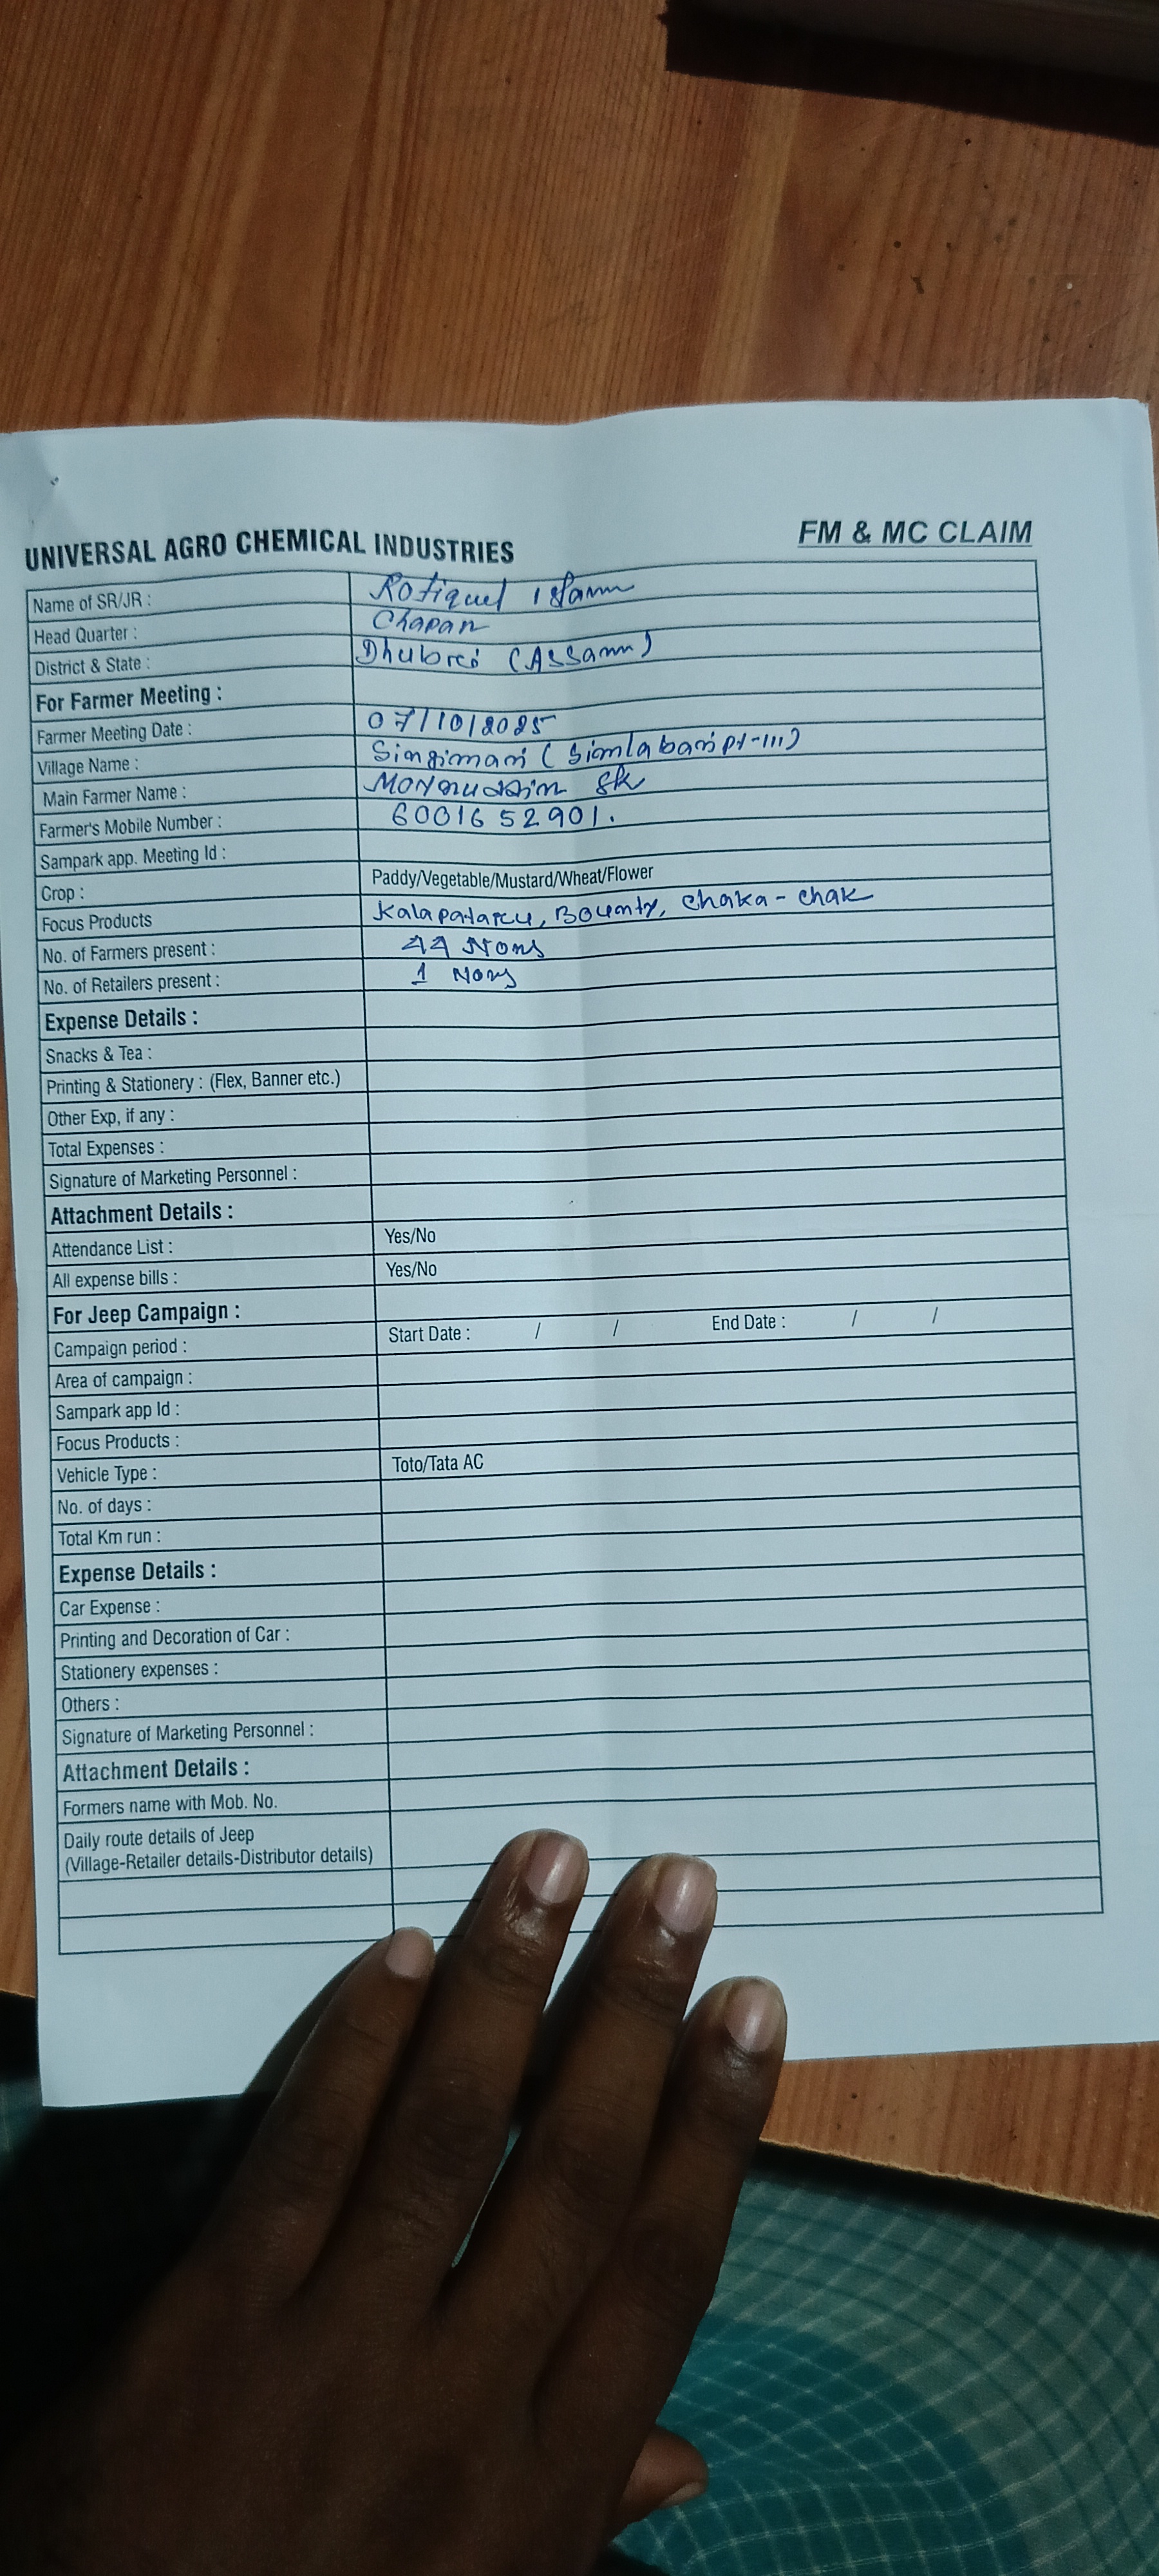 UNIVERSAL AGRO CHEMICAL INDUSTRIES FM & MC CLAIM
Name of SR/JR : Rofiqul Islam
Head Quarter : Chapar
District & State : Dhubri (Assam)
For Farmer Meeting :
Farmer Meeting Date : 07/10/2025
Village Name : Singimari (Simlabari pt-III)
Main Farmer Name : Moynuddin Sk
Farmer's Mobile Number : 6001652901.
Sampark app. Meeting Id :
Crop : Paddy/Vegetable/Mustard/Wheat/Flower
Focus Products Kalapataru, Bounty, Chaka-chak
No. of Farmers present : 44
No. of Retailers present : 1
Expense Details :
Snacks & Tea :
Printing & Stationery : (Flex, Banner etc.)
Other Exp, if any :
Total Expenses :
Signature of Marketing Personnel :
Attachment Details :
Attendance List : Yes/No
All expense bills : Yes/No
For Jeep Campaign :
Campaign period : Start Date : / / End Date : / /
Area of campaign :
Sampark app Id :
Focus Products :
Vehicle Type : Toto/Tata AC
No. of days :
Total Km run :
Expense Details :
Car Expense :
Printing and Decoration of Car :
Stationery expenses :
Others :
Signature of Marketing Personnel :
Attachment Details :
Formers name with Mob. No.
Daily route details of Jeep
(Village-Retailer details-Distributor details)